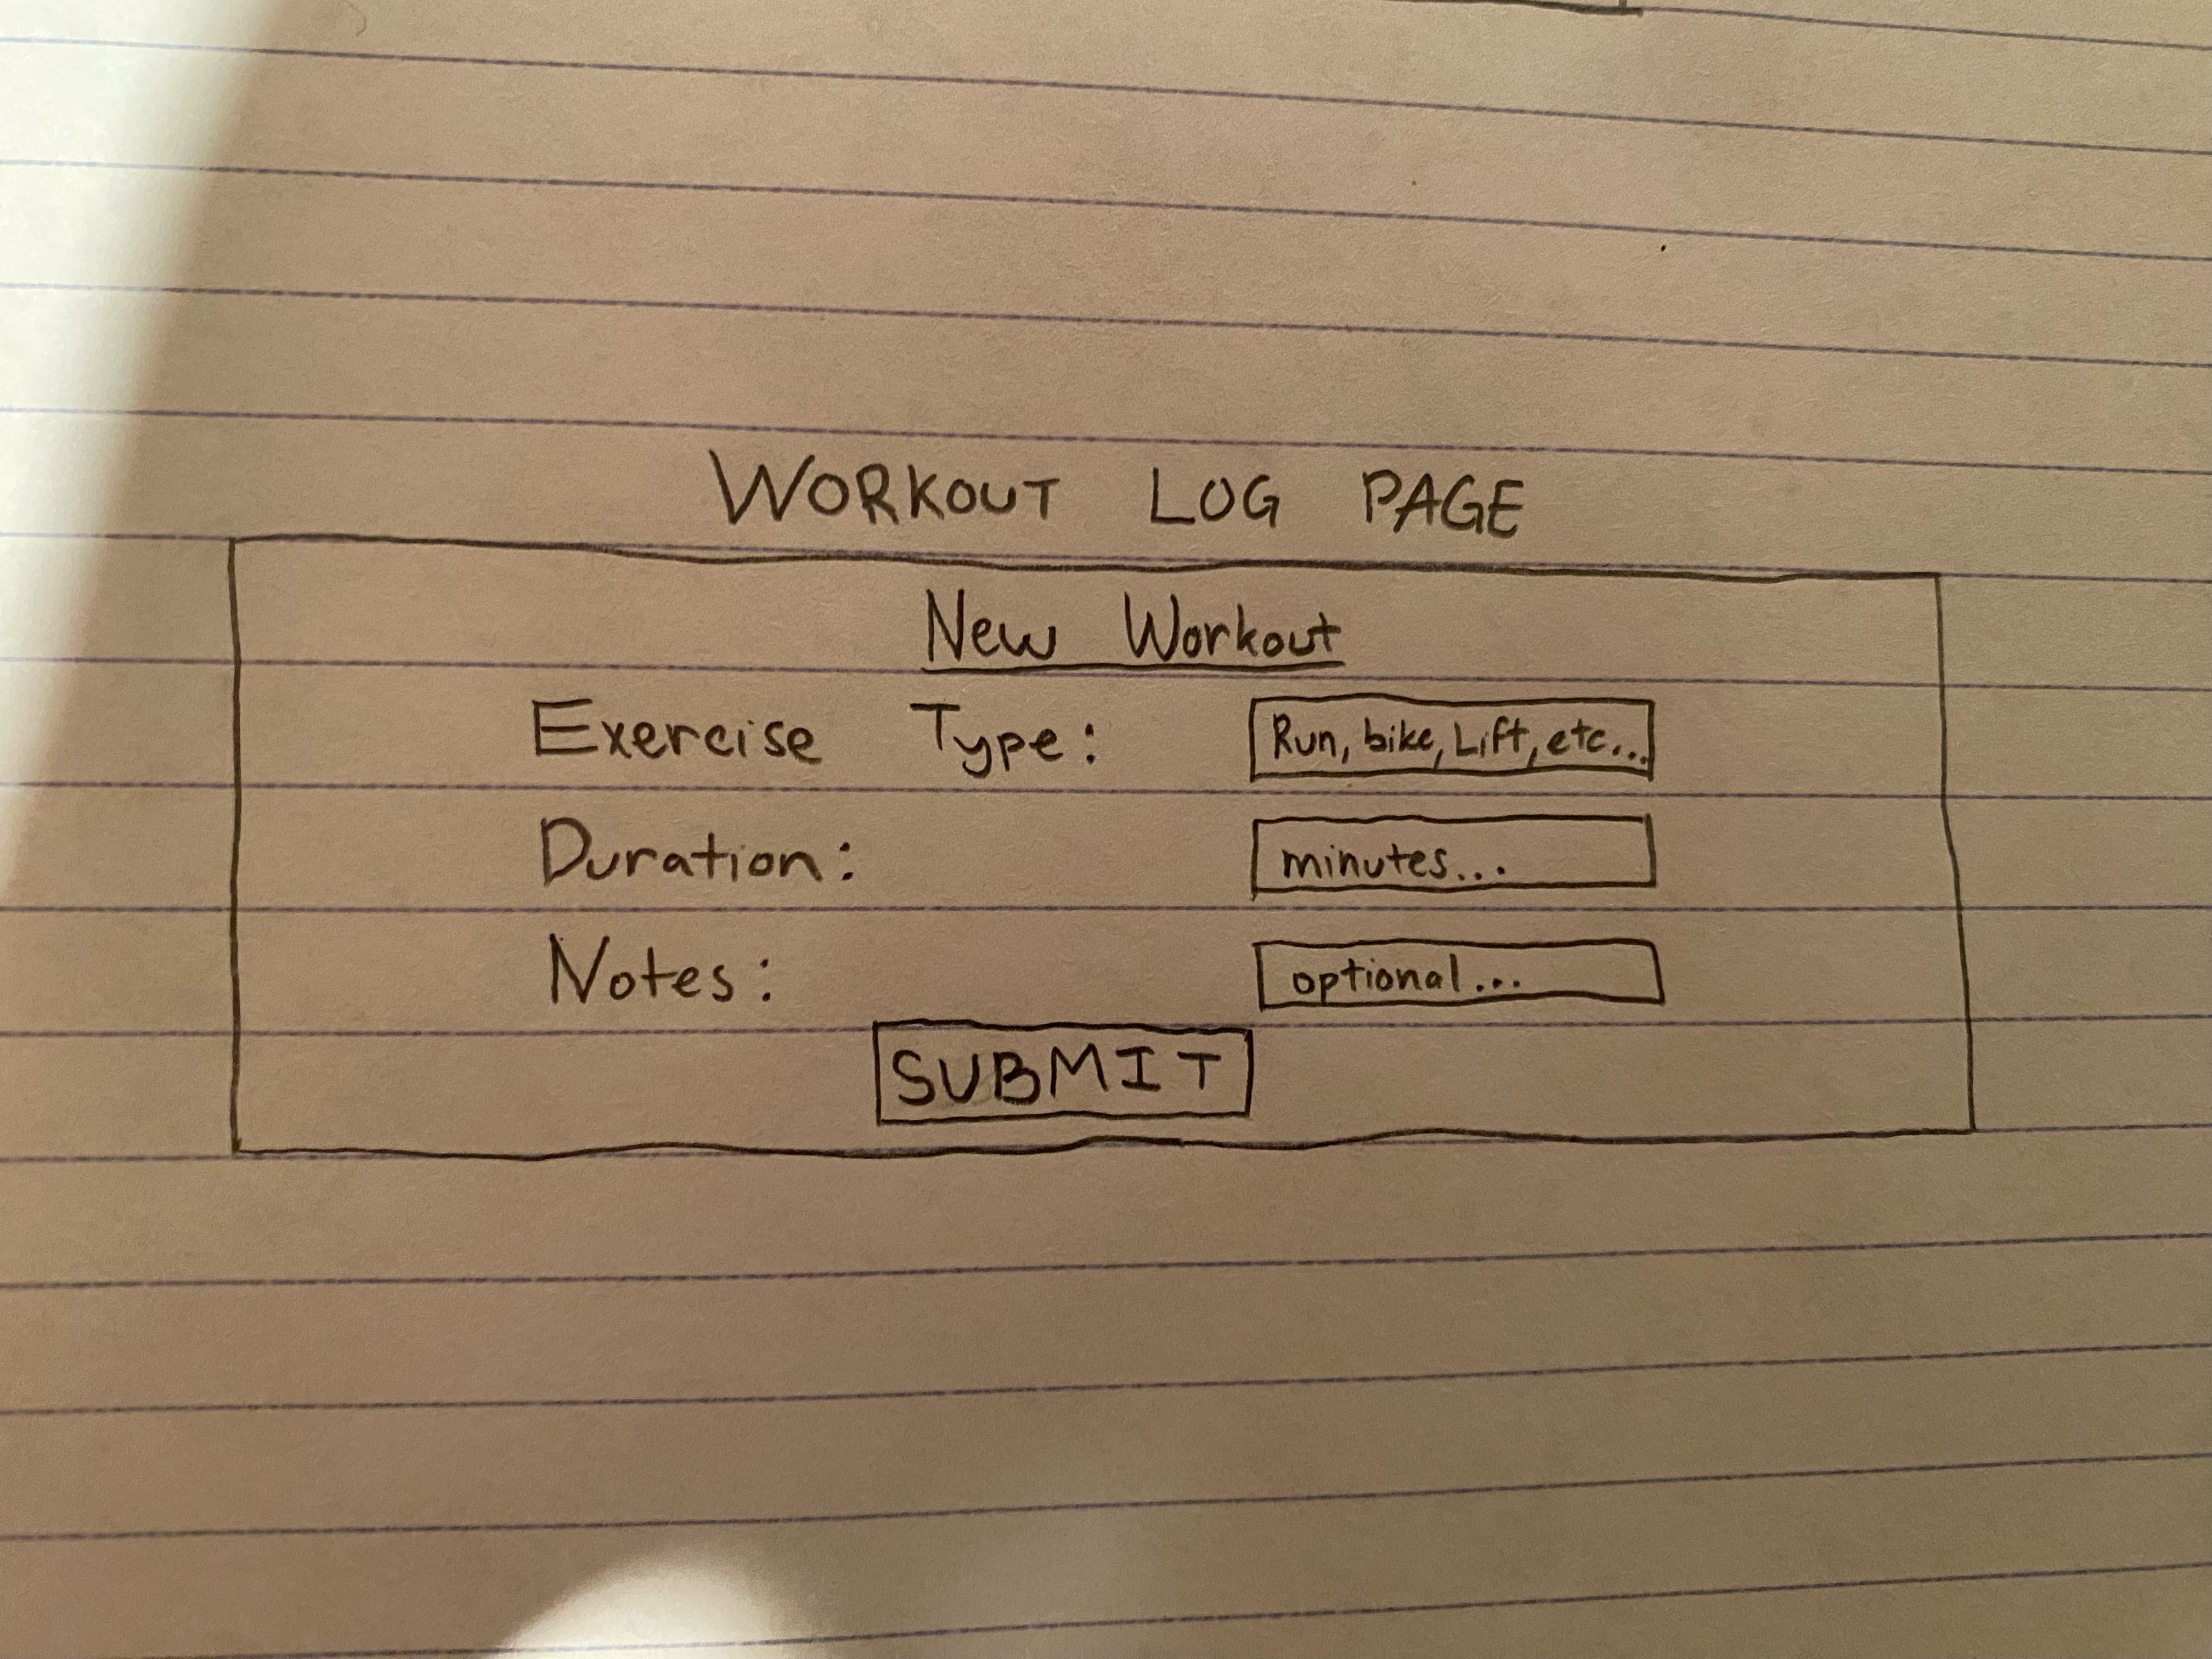 WORKOUT LOG PAGE
New Workout
Exercise Type: Run, bike, Lift, etc...
Duration: minutes...
Notes: optional...
SUBMIT